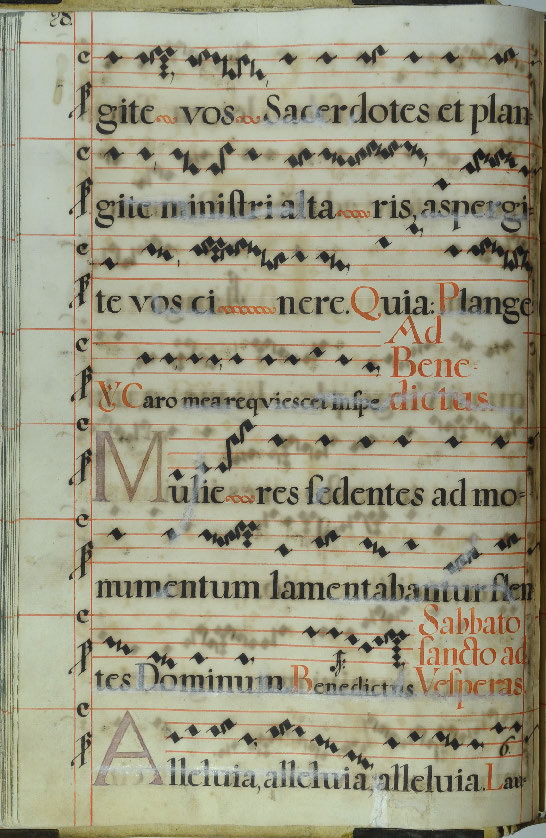 gite vos Sacerdotes et plan-
gite ministri alta ris, aspergi-
te vos ci nere. Quia: Plange
Ad
Bene-
℣ Caro mea reqviescet in spe dictus
Mulie res sedentes ad mo-
numentum lamentabantur flen
Sabbato
sancto ad
tes Dominum. Benedictus Vesperas.
Alleluia, alleluia, alleluia. Lau-